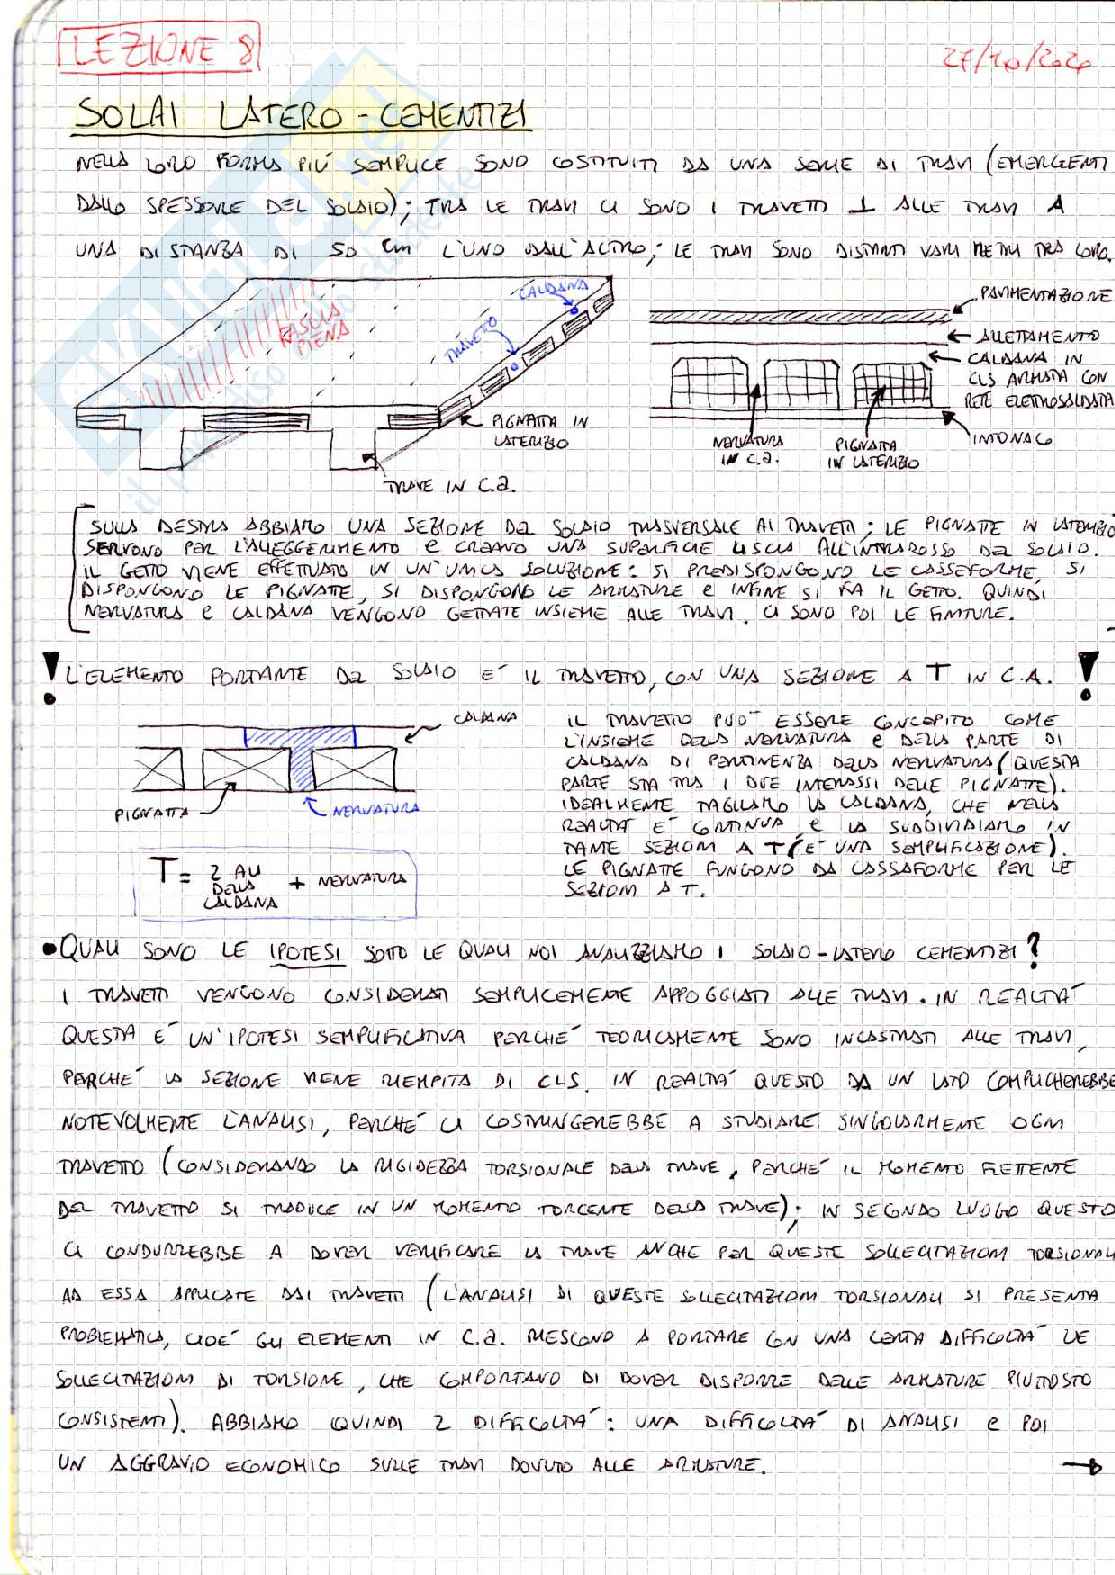 LEZIONE 8
27/10/2020
SOLAI LATERO-CEMENTIZI
NELLA LORO FORMA PIÙ SEMPLICE SONO COSTITUITI DA UNA SERIE DI TRAVI (EMERGENTI
DALLO SPESSORE DEL SOLAIO); TRA LE TRAVI CI SONO I TRAVETTI ⊥ ALLE TRAVI A
UNA DISTANZA DI 50 cm L'UNO DALL'ALTRO; LE TRAVI SONO DISTANTI VARI METRI TRA LORO.
CALDANA
TRAVETTO
FASCIA
PIENA
PIGNATTA IN
LATERIZIO
TRAVE IN C.A.
PAVIMENTAZIONE
ALLETTAMENTO
CALDANA IN
CLS ARMATA CON
RETE ELETTROSALDATA
INTONACO
NERVATURA
IN C.A.
PIGNATTA
IN LATERIZIO
SULLA DESTRA ABBIAMO UNA SEZIONE DEL SOLAIO TRASVERSALE AI TRAVETTI; LE PIGNATTE IN LATERIZIO
SERVONO PER L'ALLEGGERIMENTO E CREANO UNA SUPERFICIE LISCIA ALL'INTRADOSSO DEL SOLAIO.
IL GETTO VIENE EFFETTUATO IN UN'UNICA SOLUZIONE: SI PREDISPONGONO LE CASSEFORME, SI
DISPONGONO LE PIGNATTE, SI DISPONGONO LE ARMATURE E INFINE SI FA IL GETTO. QUINDI
NERVATURA E CALDANA VENGONO GETTATE INSIEME ALLE TRAVI. CI SONO POI LE FINITURE.
! L'ELEMENTO PORTANTE DEL SOLAIO E' IL TRAVETTO, CON UNA SEZIONE A T IN C.A. !
CALDANA
PIGNATTA
NERVATURA
T = 2 ALI DELLA CALDANA + NERVATURA
IL TRAVETTO PUO' ESSERE CONCEPITO COME
L'INSIEME DELLA NERVATURA E DELLA PARTE DI
CALDANA DI PERTINENZA DELLA NERVATURA (QUESTA
PARTE STA TRA I DUE INTERASSI DELLE PIGNATTE).
IDEALMENTE TAGLIAMO LA CALDANA, CHE NELLA
REALTA' E' CONTINUA, E LA SUDDIVIDIAMO IN
TANTE SEZIONI A T (E' UNA SEMPLIFICAZIONE).
LE PIGNATTE FUNGONO DA CASSAFORME PER LE
SEZIONI A T.
• QUALI SONO LE IPOTESI SOTTO LE QUALI NOI ANALIZZIAMO I SOLAIO-LATERO CEMENTIZI?
I TRAVETTI VENGONO CONSIDERATI SEMPLICEMENTE APPOGGIATI ALLE TRAVI. IN REALTA'
QUESTA E' UN'IPOTESI SEMPLIFICATIVA PERCHE' TEORICAMENTE SONO INCASTRATI ALLE TRAVI,
PERCHE' LA SEZIONE VIENE RIEMPITA DI CLS. IN REALTA' QUESTO DA UN LATO COMPLICHEREBBE
NOTEVOLMENTE L'ANALISI, PERCHE' CI COSTRINGEREBBE A STUDIARE SINGOLARMENTE OGNI
TRAVETTO (CONSIDERANDO LA RIGIDEZZA TORSIONALE DELLA TRAVE, PERCHE' IL MOMENTO FLETTENTE
DEL TRAVETTO SI TRADUCE IN UN MOMENTO TORCENTE DELLA TRAVE); IN SECONDO LUOGO QUESTO
CI CONDURREBBE A DOVER VERIFICARE LA TRAVE ANCHE PER QUESTE SOLLECITAZIONI TORSIONALI
AD ESSA APPLICATE DAI TRAVETTI (L'ANALISI DI QUESTE SOLLECITAZIONI TORSIONALI SI PRESENTA
PROBLEMATICA, CIOE' GLI ELEMENTI IN C.A. RIESCONO A PORTARE CON UNA CERTA DIFFICOLTA' LE
SOLLECITAZIONI DI TORSIONE, CHE COMPORTANO DI DOVER DISPORRE DELLE ARMATURE PIUTTOSTO
CONSISTENTI). ABBIAMO QUINDI 2 DIFFICOLTA': UNA DIFFICOLTA' DI ANALISI E POI
UN AGGRAVIO ECONOMICO SULLE TRAVI DOVUTO ALLE ARMATURE. →